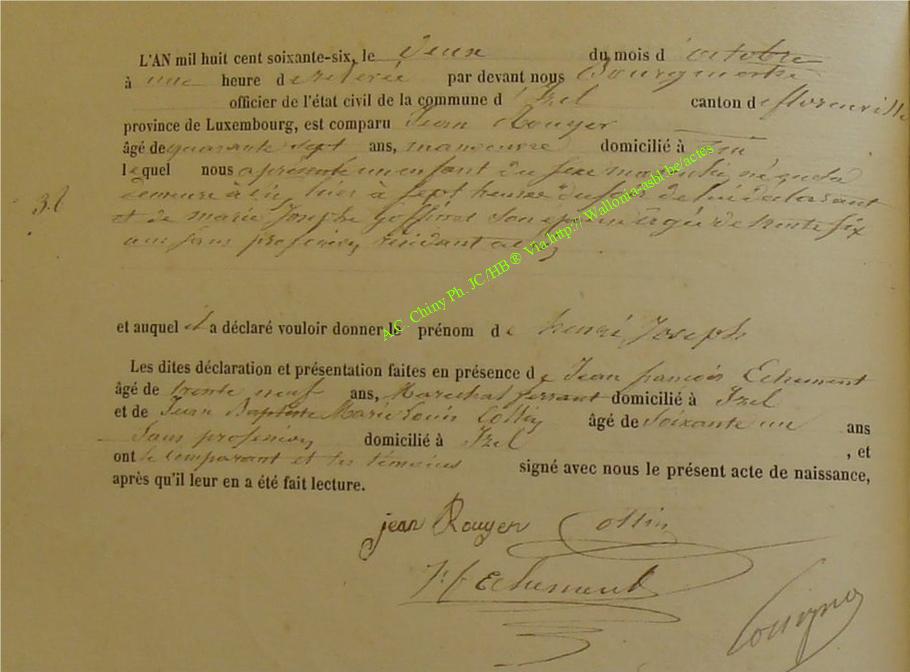 L'AN mil huit cent soixante-six, le deux du mois d'octobre
à une heure de relevée par devant nous Bourgmestre
officier de l'état civil de la commune d'Izel canton de florenville
province de Luxembourg, est comparu Jean Rouyer
âgé de quarante sept ans, manoeuvre domicilié à
lequel nous a présenté un enfant du sexe masculin, né
hier à sept heures du soir de lui déclarant
32
et de marie Joseph son épouse agée de trente six
ans sans profession, résidant
A.C. Chiny Ph. JC/HB® Via http://Wallonia-asbl.be/actes
et auquel il a déclaré vouloir donner le prénom de henri Joseph
Les dites déclaration et présentation faites en présence de Jean françois Echement
âgé de trente neuf ans, Marechal ferrant domicilié à Izel
et de Jean Baptiste Marie Louis Collin âgé de Soixante un ans
Sans profession domicilié à Izel , et
ont le comparant et les témoins signé avec nous le présent acte de naissance,
après qu'il leur en a été fait lecture.
jean Rouyer Collin
Echement